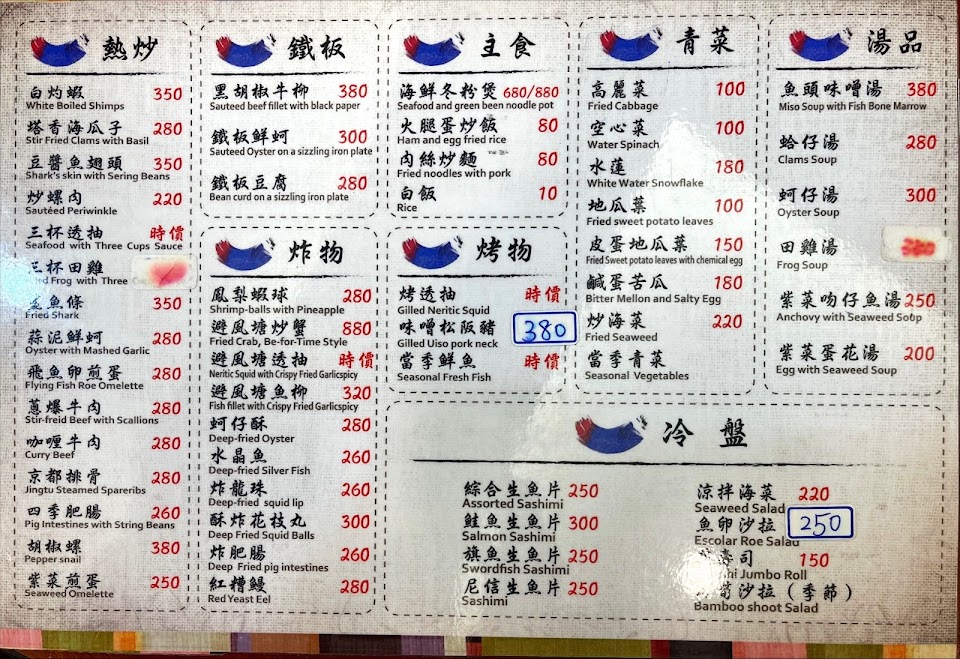 熱炒
白灼蝦 350
White Boiled Shimps
塔香海瓜子 280
Stir Fried Clams with Basil
豆醬魚翅頭 350
Shark's skin with Sering Beans
炒螺肉 220
Sautéed Periwinkle
三杯透抽 時價
Seafood with Three Cups Sauce
三杯田雞
Fried Frog with Three
魚條 350
Fried Shark
蒜泥鮮蚵 280
Oyster with Mashed Garlic
飛魚卵煎蛋 280
Flying Fish Roe Omelette
蔥爆牛肉 280
Stir-freid Beef with Scallions
咖喱牛肉 280
Curry Beef
京都排骨 280
Jingtu Steamed Spareribs
四季肥腸 260
Pig Intestines with String Beans
胡椒螺 380
Pepper snail
紫菜煎蛋 250
Seaweed Omelette
鐵板
黑胡椒牛柳 380
Sauteed beef fillet with black paper
鐵板鮮蚵 300
Sauteed Oyster on a sizzling iron plate
鐵板豆腐 280
Bean curd on a sizzling iron plate
炸物
鳳梨蝦球 280
Shrimp-balls with Pineapple
避風塘炒蟹 880
Fried Crab, Be-for-Time Style
避風塘透抽 時價
Neritic Squid with Crispy Fried Garlicspicy
避風塘魚柳 320
Fish fillet with Crispy Fried Garlicspicy
蚵仔酥 280
Deep-fried Oyster
水晶魚 260
Deep-fried Silver Fish
炸龍珠 260
Deep-fried squid lip
酥炸花枝丸 300
Deep Fried Squid Balls
炸肥腸 260
Deep Fried pig intestines
紅糟鰻 280
Red Yeast Eel
主食
海鮮冬粉煲 680/880
Seafood and green been noodle pot
火腿蛋炒飯 80
Ham and egg fried rice
肉絲炒麵 80
Fried noodles with pork
白飯 10
Rice
烤物
烤透抽 時價
Gilled Neritic Squid
味噌松阪豬 380
Gilled Uiso pork neck
當季鮮魚 時價
Seasonal Fresh Fish
青菜
高麗菜 100
Fried Cabbage
空心菜 100
Water Spinach
水蓮 180
White Water Snowflake
地瓜葉 100
Fried sweet potato leaves
皮蛋地瓜葉 150
Fried Sweet potato leaves with chemical egg
鹹蛋苦瓜 180
Bitter Mellon and Salty Egg
炒海菜 220
Fried Seaweed
當季青菜
Seasonal Vegetables
湯品
魚頭味噌湯 380
Miso Soup with Fish Bone Marrow
蛤仔湯 280
Clams Soup
蚵仔湯 300
Oyster Soup
田雞湯
Frog Soup
紫菜吻仔魚湯 250
Anchovy with Seaweed Soup
紫菜蛋花湯 200
Egg with Seaweed Soup
冷盤
綜合生魚片 250
Assorted Sashimi
鮭魚生魚片 300
Salmon Sashimi
旗魚生魚片 250
Swordfish Sashimi
尼信生魚片 250
Sashimi
涼拌海菜 220
Seaweed Salad
魚卵沙拉 250
Escolar Roe Salad
壽司 150
Jumbo Roll
筍沙拉（季節）
Bamboo shoot Salad